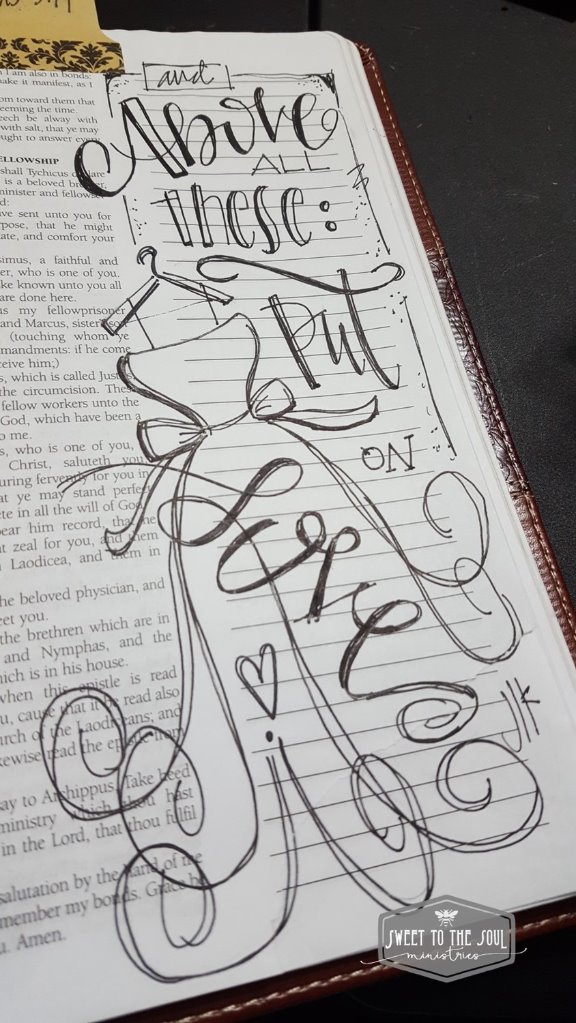 and
Above
ALL
these:
Put
ON
Love
jlk
I am also in bonds:
ake it manifest, as I
om toward them that
eeming the time.
eech be alway with
with salt, that ye may
ught to answer every
ELLOWSHIP
shall Tychicus declare
is a beloved brother,
minister and fellow
d:
ave sent unto you for
rpose, that he might
ate, and comfort your
simus, a faithful and
er, who is one of you.
ke known unto you all
are done here.
us my fellowprisoner
and Marcus, sister's son
(touching whom ye
mandments: if he come
ceive him;)
s, which is called Justus
the circumcision. These
fellow workers unto the
God, which have been a
o me.
s, who is one of you,
Christ, saluteth you
uring fervently for you in
at ye may stand perfect
ete in all the will of God
bear him record, that he
t zeal for you, and them
Laodicea, and them in
he beloved physician, and
eet you.
the brethren which are in
and Nymphas, and the
hich is in his house.
when this epistle is read
u, cause that it be read also
urch of the Laodiceans; and
kewise read the epistle from
ay to Archippus, Take heed
ministry which thou hast
in the Lord, that thou fulfil
salutation by the hand of
member my bonds. Grace be
u. Amen.
SWEET TO THE SOUL
ministries